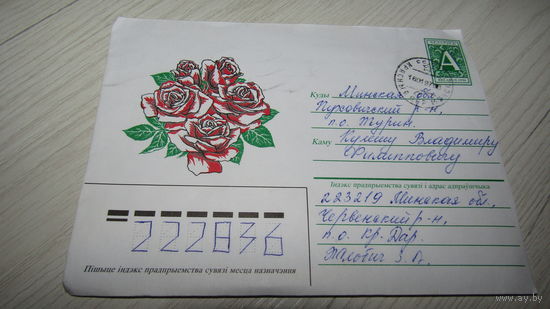 А
Куды Минская обл.
Пуховичский р-н,
п.о. Турин.
Каму Кулешу Владимиру
Филипповичу
Індэкс прадпрыемства сувязі і адрас адпраўшчыка
223219 Минская обл,
Червенский р-н,
п.о. Кр. Дар.
Жлобич З.А.
222836
Пішыце індэкс прадпрыемства сувязі месца назначэння
www.ay.by